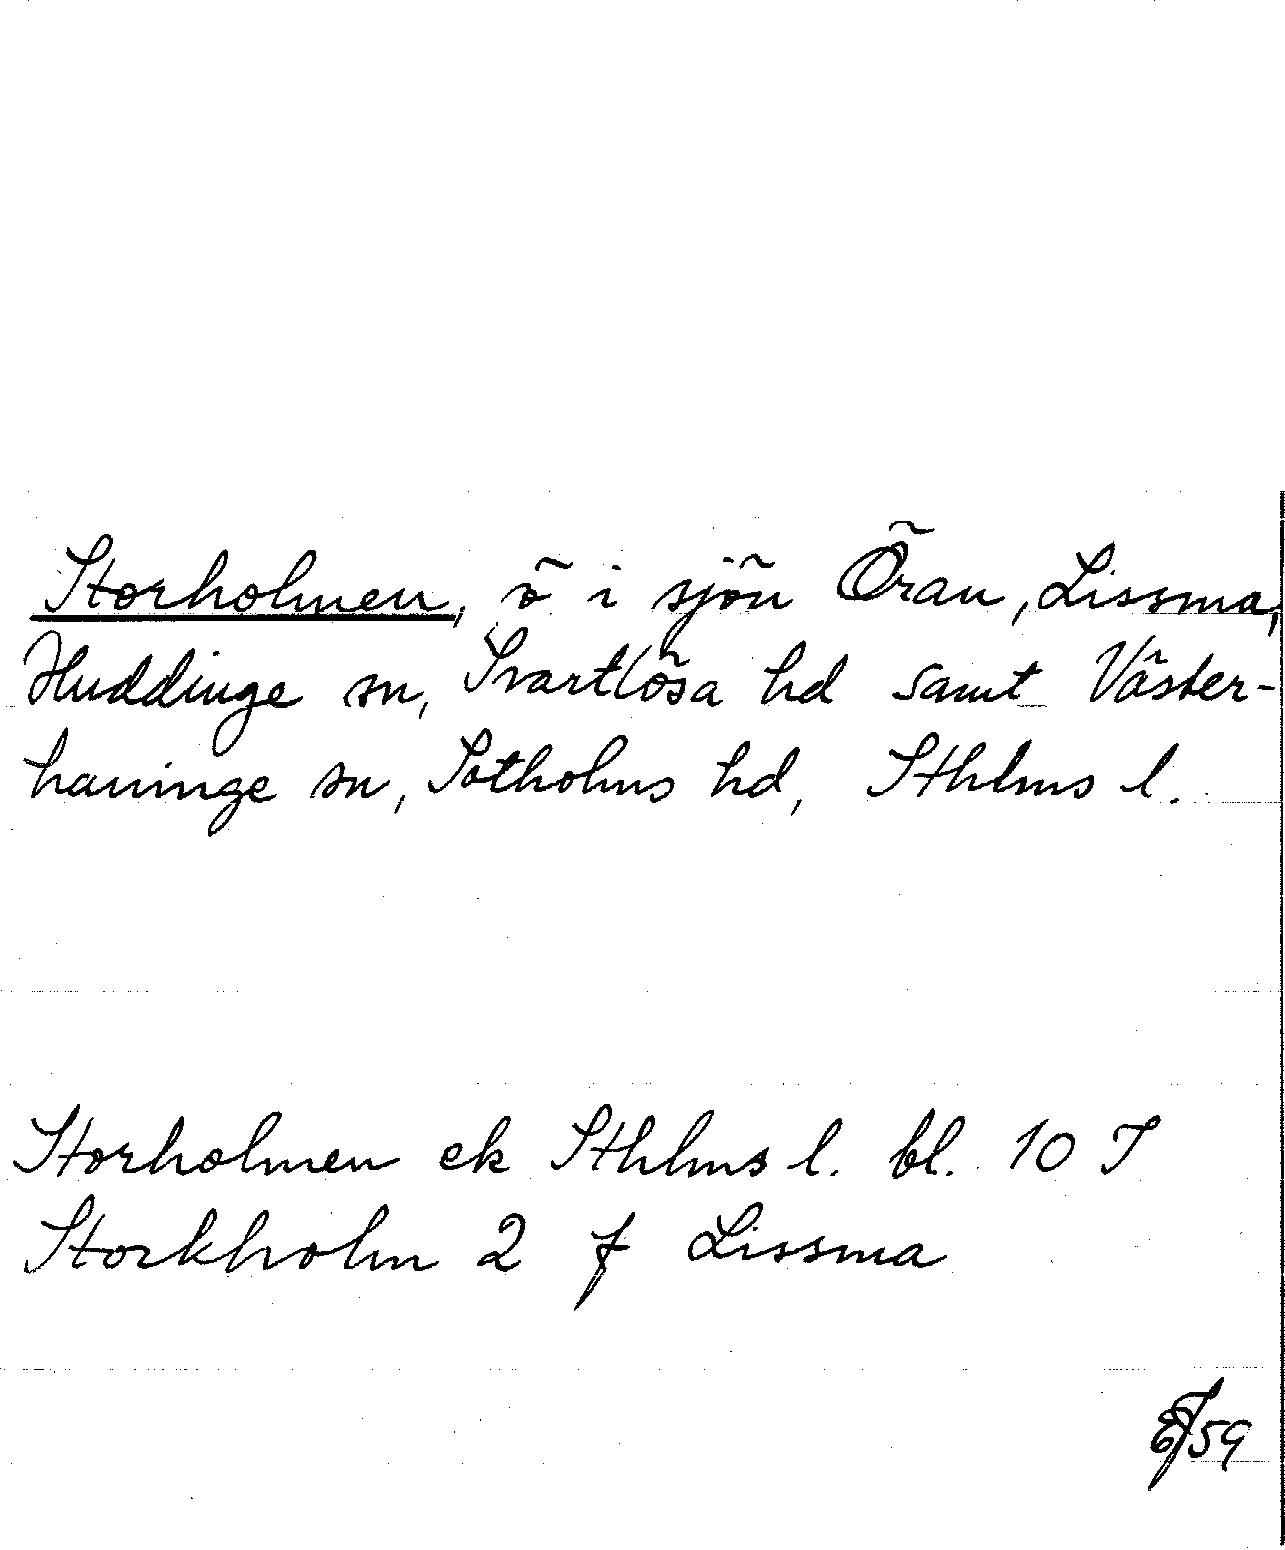 Storholmen, ö i sjön Öran, Lissma,
Huddinge sn, Svartlösa hd samt Väster-
haninge sn, Sotholms hd, Sthlms l.
Storholmen ek Sthlms l. bl. 10 J
Stockholm 2 f Lissma
59